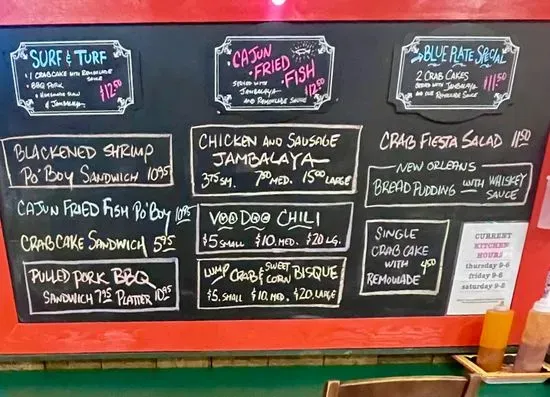 SURF & TURF
• 1 CRABCAKE WITH REMOULADE SAUCE
• BBQ PORK
• HOMEMADE SLAW & JAMBALAYA
$12.50
CAJUN FRIED FISH
SERVED WITH JAMBALAYA
AND REMOULADE SAUCE
$12.50
BLUE PLATE SPECIAL
2 CRAB CAKES
SERVED WITH JAMBALAYA
AND OUR REMOULADE SAUCE
$11.50
BLACKENED SHRIMP
PO'BOY SANDWICH 10.95
CAJUN FRIED FISH PO'BOY 10.95
CRABCAKE SANDWICH 5.95
PULLED PORK BBQ
SANDWICH 7.95 PLATTER 10.95
CHICKEN AND SAUSAGE
JAMBALAYA
3.75 SM. 7.50 MED. 15.00 LARGE
VOODOO CHILI
$5 SMALL $10. MED. $20 LG.
LUMP CRAB & SWEET CORN BISQUE
$5. SMALL $10. MED. $20. LARGE
CRAB FIESTA SALAD 11.50
NEW ORLEANS
BREAD PUDDING WITH WHISKEY SAUCE
SINGLE
CRAB CAKE
WITH 4.50
REMOULADE
CURRENT
KITCHEN
HOURS
thursday 9-6
friday 9-6
saturday 9-8